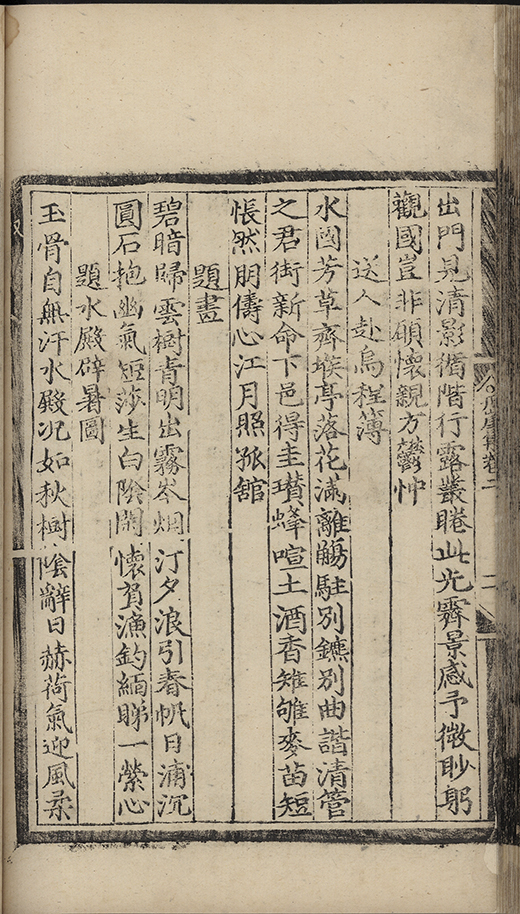 出門見清影循階行露叢睠此光霽景感予微眇躬
觀國豈非碩懷親方鬱忡
送人赴烏程簿
水國芳草齊堠亭落花滿離觴駐別鑣別曲諧清管
之君街新命下邑得圭瓚蜂喧土酒香雉雊麥苗短
悵然朋儔心江月照孤舘
題畫
碧暗歸雲樹青明出霧岑烟汀夕浪引春帆日浦沉
圓石抱幽氣短莎生白陰閑懷負漁釣緬睇一縈心
題水殿辟暑圖
玉骨自無汗水殿况如秋樹陰辭日赫荷氣迎風柔